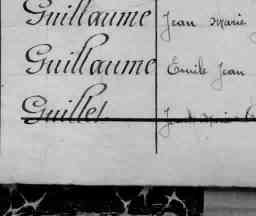 Guillaume Jean Marie
Guillaume Emile Jean
Guillet